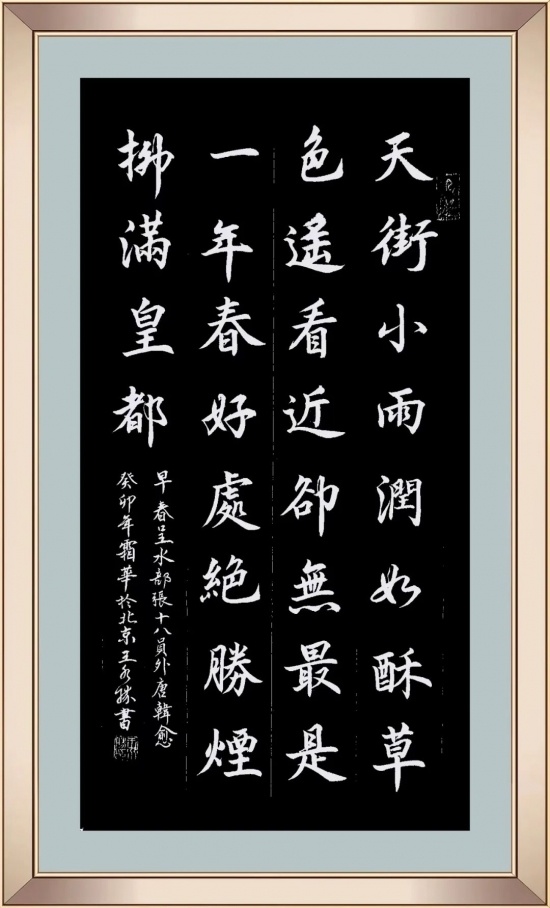 天街小雨潤如酥草
色遙看近卻無最是
一年春好處絕勝煙
柳滿皇都
早春呈水部張十八員外唐韓愈
癸卯年霜華於北京王
書